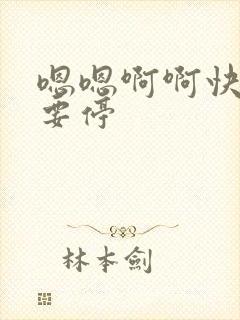 嗯嗯啊啊快
要停
林本剑